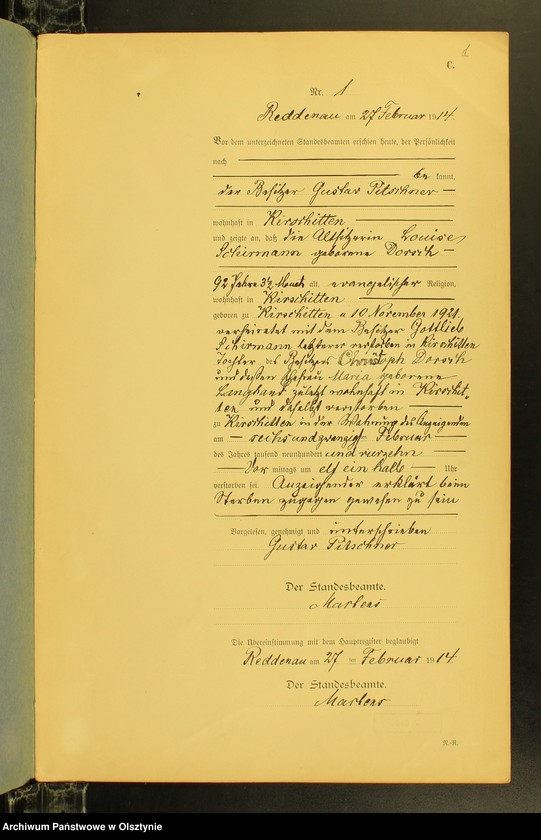 1
C.
Nr. 1
Reddenau am 27 Februar 1914.
Vor dem unterzeichneten Standesbeamten erschien heute, der Persönlichkeit
nach
be kannt,
der Besitzer Gustav Pitschner
wohnhaft in Kirschitten
und zeigte an, daß die Altsitzerin Louise
Schirmann geborene Dorsch
92 Jahre 3½ Monat alt, evangelischer Religion,
wohnhaft in Kirschitten
geboren zu Kirschitten a 10 November 1921.
verheiratet mit dem Besitzer Gottlieb
Schirmann letzterer verstorben in Kirschitten
Tochter des Besitzers Christoph Dorsch
und dessen Ehefrau Maria geborene
Langhans zuletzt wohnhaft in Kirschit-
ten und daselbst verstorben
zu Kirschitten in der Wohnung des Anzeigenden
am sechsundzwanzigsten Februar
des Jahres tausend neunhundert und vierzehn
Vor mittags um elf ein halb Uhr
verstorben sei. Anzeigender erklärt beim
Sterben zugegen gewesen zu sein
Vorgelesen, genehmigt und unterschrieben
Gustav Pitschner
Der Standesbeamte.
Martens
Die Übereinstimmung mit dem Hauptregister beglaubigt
Reddenau am 27 Februar 1914
Der Standesbeamte.
Martens
Archiwum Państwowe w Olsztynie